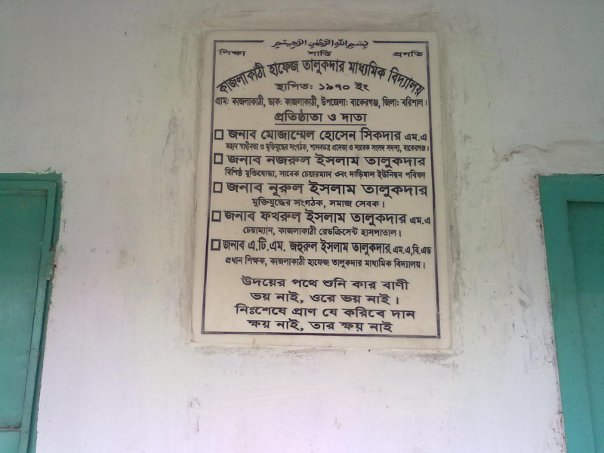 بسم الله الرحمن الرحيم
শিক্ষা শান্তি প্রগতি
কাজলাকাঠী হাফেজ তালুকদার মাধ্যমিক বিদ্যালয়
স্থাপিত: ১৯৭০ ইং
গ্রাম: কাজলাকাঠী, ডাক: কাজলাকাঠী, উপজেলা: বাকেরগঞ্জ, জিলা: বরিশাল।
প্রতিষ্ঠাতা ও দাতা
জনাব মোজাম্মেল হোসেন সিকদার এম.এ
মহান স্বাধীনতা ও মুক্তিযুদ্ধের সংগঠক, শাসনতন্ত্র প্রণেতা ও সাবেক সংসদ সদস্য, বাকেরগঞ্জ।
জনাব নজরুল ইসলাম তালুকদার
বিশিষ্ট মুক্তিযোদ্ধা, সাবেক চেয়ারম্যান ৩নং দাড়িয়াল ইউনিয়ন পরিষদ
জনাব নূরুল ইসলাম তালুকদার
মুক্তিযুদ্ধের সংগঠক, সমাজ সেবক।
জনাব ফখরুল ইসলাম তালুকদার এম.এ
চেয়াম্যান, কাজলাকাঠী রেডক্রিসেন্ট হাসপাতাল।
জনাব এ.টি.এম. জহুরুল ইসলাম তালুকদার এম.এ,বি.এড
প্রধান শিক্ষক, কাজলাকাঠী হাফেজ তালুকদার মাধ্যমিক বিদ্যালয়।
উদয়ের পথে শুনি কার বাণী
ভয় নাই, ওরে ভয় নাই।
নিঃশেষে প্রাণ যে করিবে দান
ক্ষয় নাই, তার ক্ষয় নাই